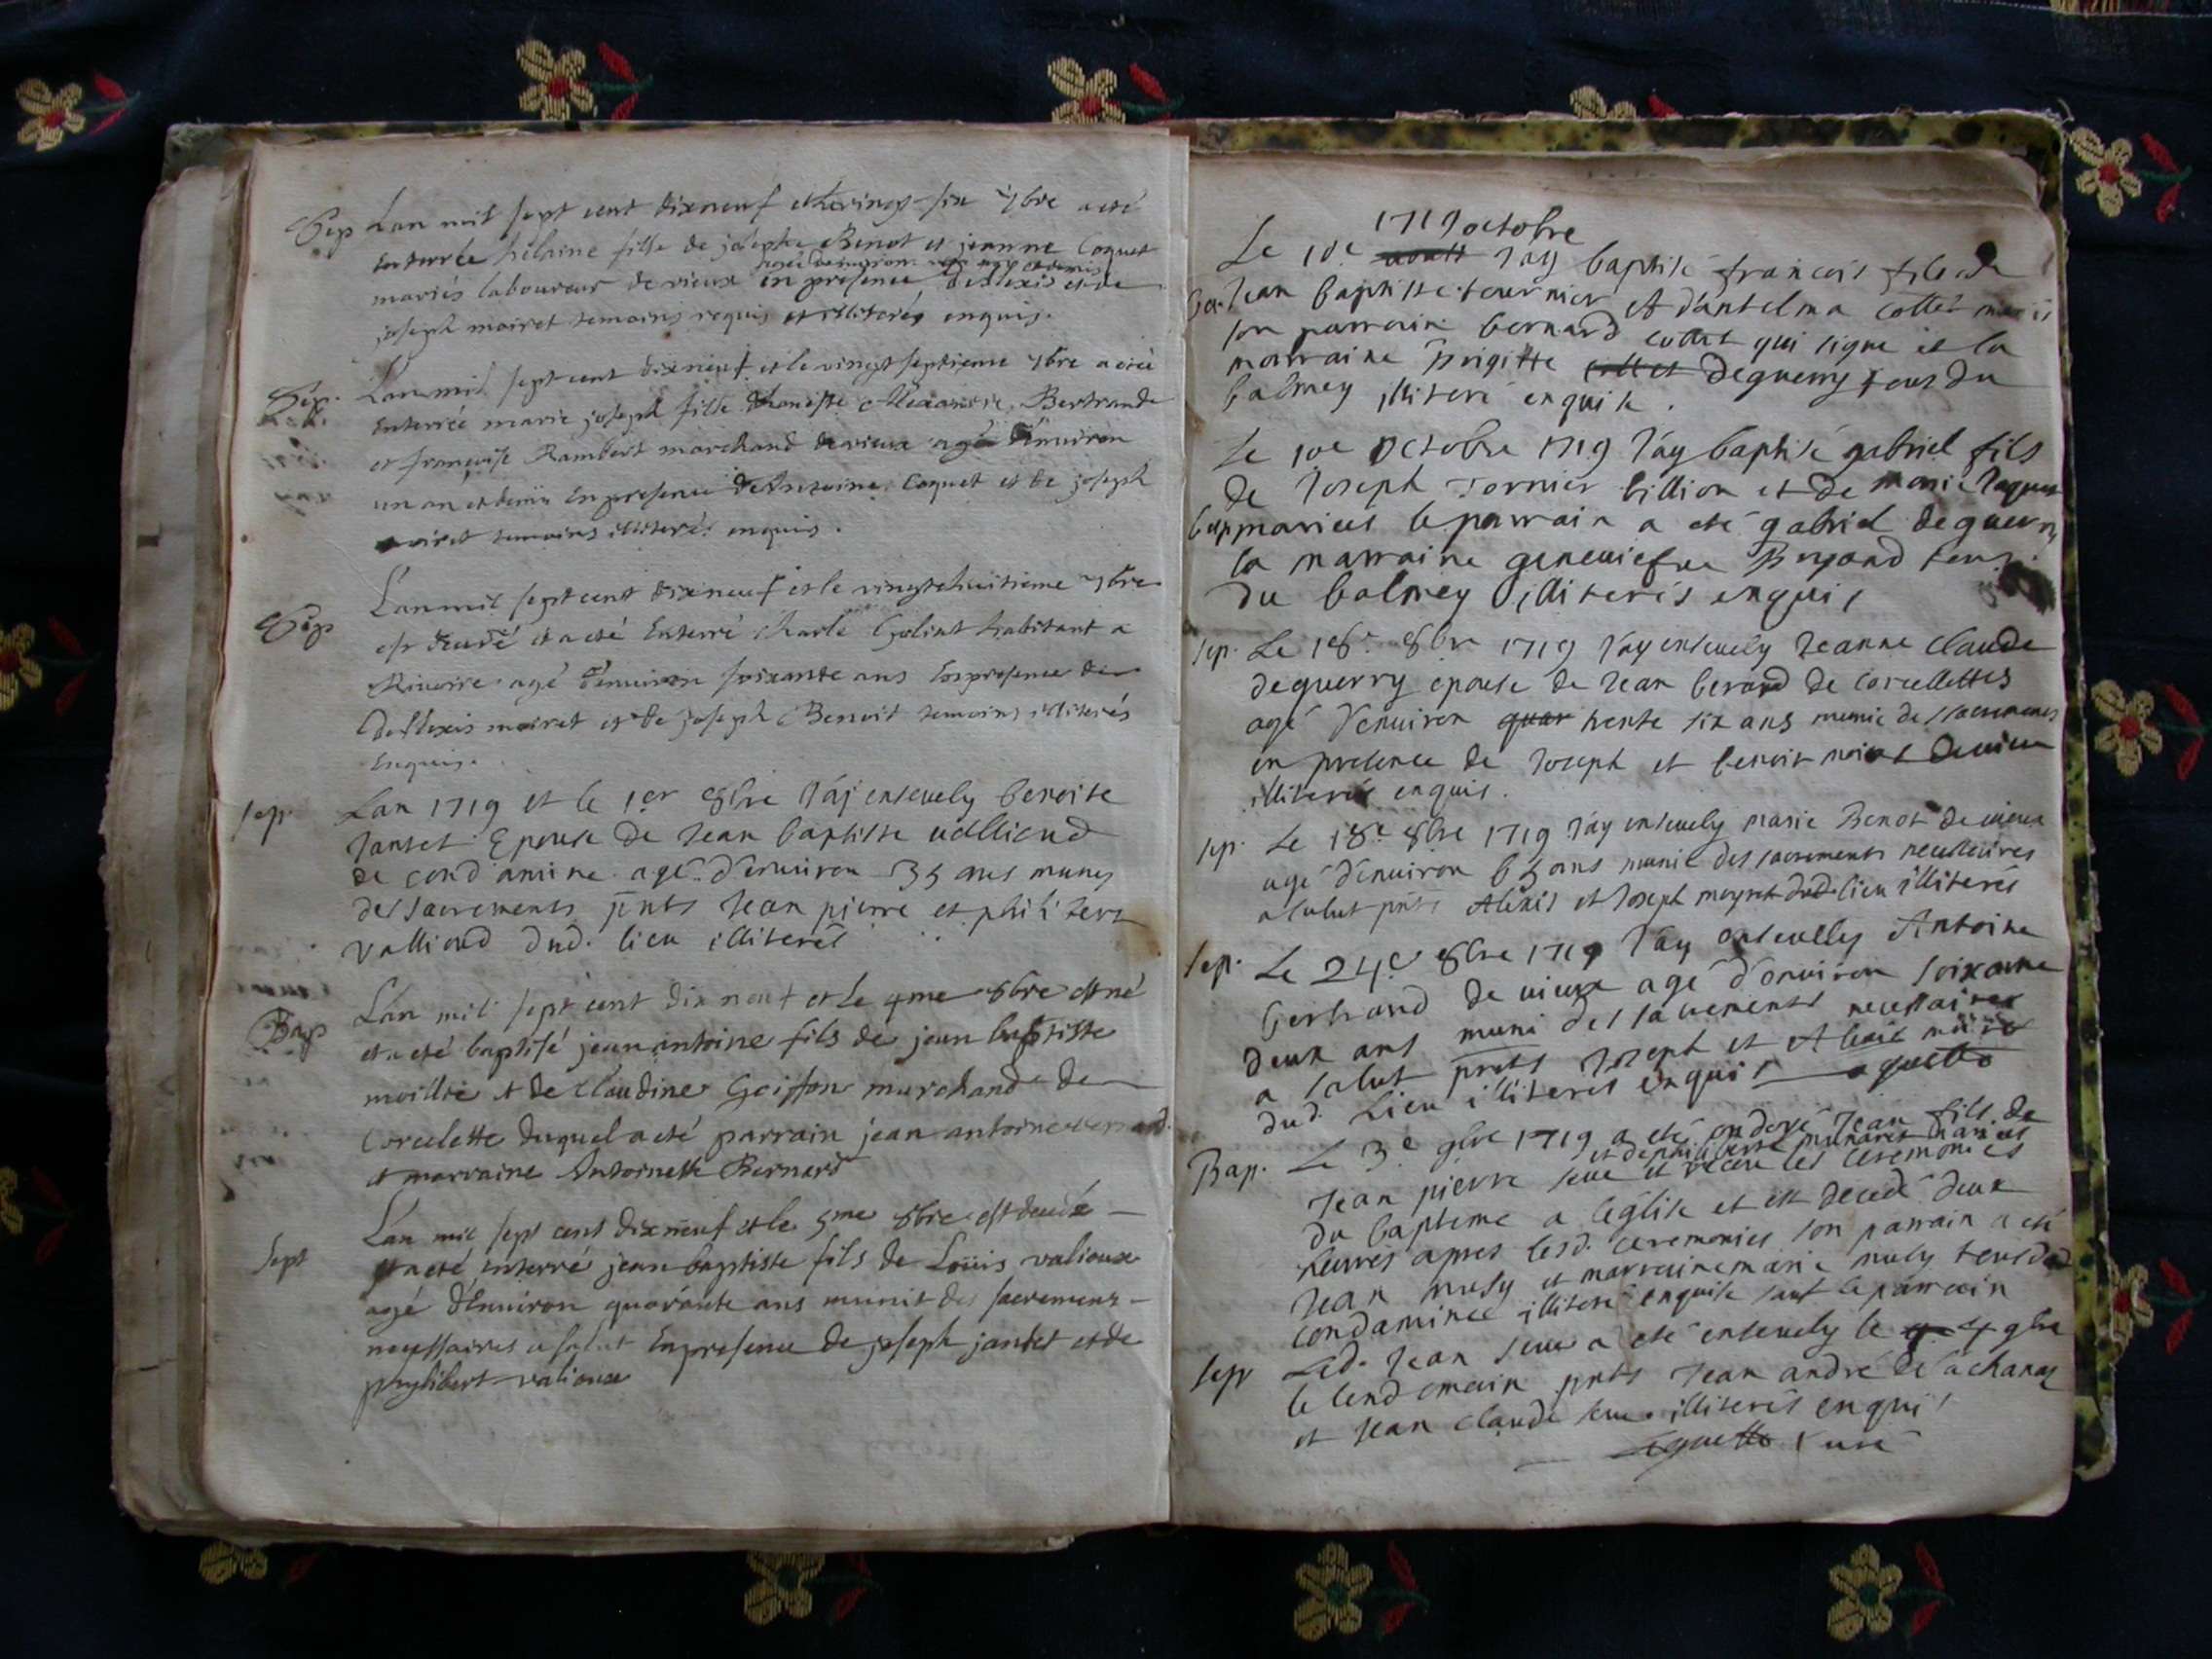 Sep Lan mil sept cent dixneuf et le vingt six 7bre a eté
Enterrée hélaine fille de joseph Benot et jeanne Coquet
agée denviron un an et demi
mariés laboureur de vieux en presence dAlexis et de
joseph moiret temoins requis et illiterés enquis.
Sep. Lan mil sept cent dixneuf et le vingt septieme 7bre a eté
Enterrée marie joseph fille Bertrand
et françoise Rambert marchand de vieux agé d'environ
un an et demi En presence de Antoine Coquet et de joseph
moiret temoins illiterés enquis.
Sep L'an mil sept cent dixneuf et le vingt huitieme 7bre
est decedé et a eté Enterré Charle Goliat habitant a
Rivoire agé d'environ soixante ans En presence de
dAlexis moiret et de joseph Benoit temoins illiterés
Enquis.
sep. Lan 1719 et le 1er 8bre Jaj ensevely benoite
Jantet Epouse de Jean baptiste valliend
de condamine agé d'environ 35 ans munej
des sacrements pnts Jean pierre et philibert
valliend dud. lieu illiterés
Bap L'an mil sept cent dix neuf et le 4me 8bre est né
et a eté baptisé jean antoine fils de jean baptiste
moillie et de Claudine Goiffon marchand de
Corcelette duquel a eté parrain jean antoine bernard
et marraine Antoinette Bernard
Sept L'an mil sept cent dixneuf et le 5me 8bre est decedé
et a eté enterré jean baptiste fils de Loüis valioux
agé d'Environ quarante ans munit des sacremens
necessaires a salut En presence de joseph jantet et de
phylibert valioux
1719 octobre
Le 10e aoult Jay baptisé françois fils de
bap. Jean baptiste tournier et d'antelma collet mariés
son parrain bernard collet qui signe et la
marraine Brigitte collet deguerry tous du
balmey illiteré enquise.
Le 10e octobre 1719 J'ay baptisé gabriel fils
de Joseph Tornier billion et de marie Jaquet
bap mariés le parrain a eté gabriel deguerry
la marraine geneviefve Bryand tous
du balmey illiterés enquis
sep. Le 18e 8bre 1719 J'ay ensevely Jeanne Claude
deguerry epouse de Jean berard de Corcellettes
agé d'environ quar trente six ans munie des sacremens
en presence de Joseph et benoit moiret de vieu
illiterés enquis.
sep. Le 18e 8bre 1719 J'ay ensevely marie Benot de vieux
agé d'environ 65 ans munie des sacrements necessaires
a salut pnts Alexis et Joseph moyret dud. lieu illiterés
sep. Le 24e 8bre 1719 J'ay ensevelly Antoine
bertrand de vieux agé d'environ soixante
deux ans muni des sacrements necessaires
a salut pnts Joseph et Alexis moiret
dud. Lieu illiteres enquis aguetto
Bap. Le 3e 9bre 1719 a eté ondoyé Jean fils de
et de philiberte munaret mariés
Jean pierre seve et receu les ceremonies
du bapteme a l'église et est decedé deux
heures apres lesd. ceremonies son parrain a eté
Jean musy et marraine marie musy tous de
condamine illiteré enquise sauf le parrain
sep Led. Jean seve a eté ensevely le 4 9bre
le lendemain pnts Jean andré de lachanaz
et Jean Claude seve illiterés enquis
aguetto curé